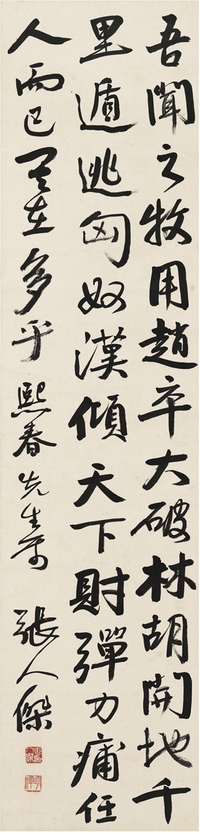 吾聞之牧用趙卒大破林胡開地千
里遁逃匈奴漢傾天下財殫力痡任
人而已其在多乎 熙春先生 張人傑